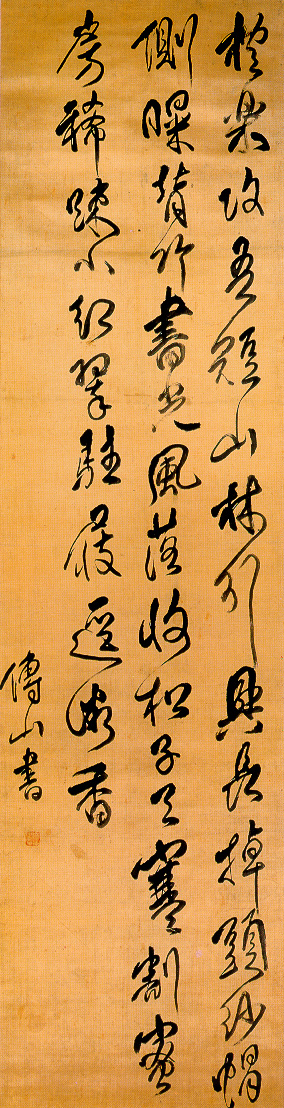 禮樂攻吾短山林引興長掉頭紗帽
側曝背竹書光風落收松子天寒割蜜
房稀疎小紅翠駐屐微香
傅山書